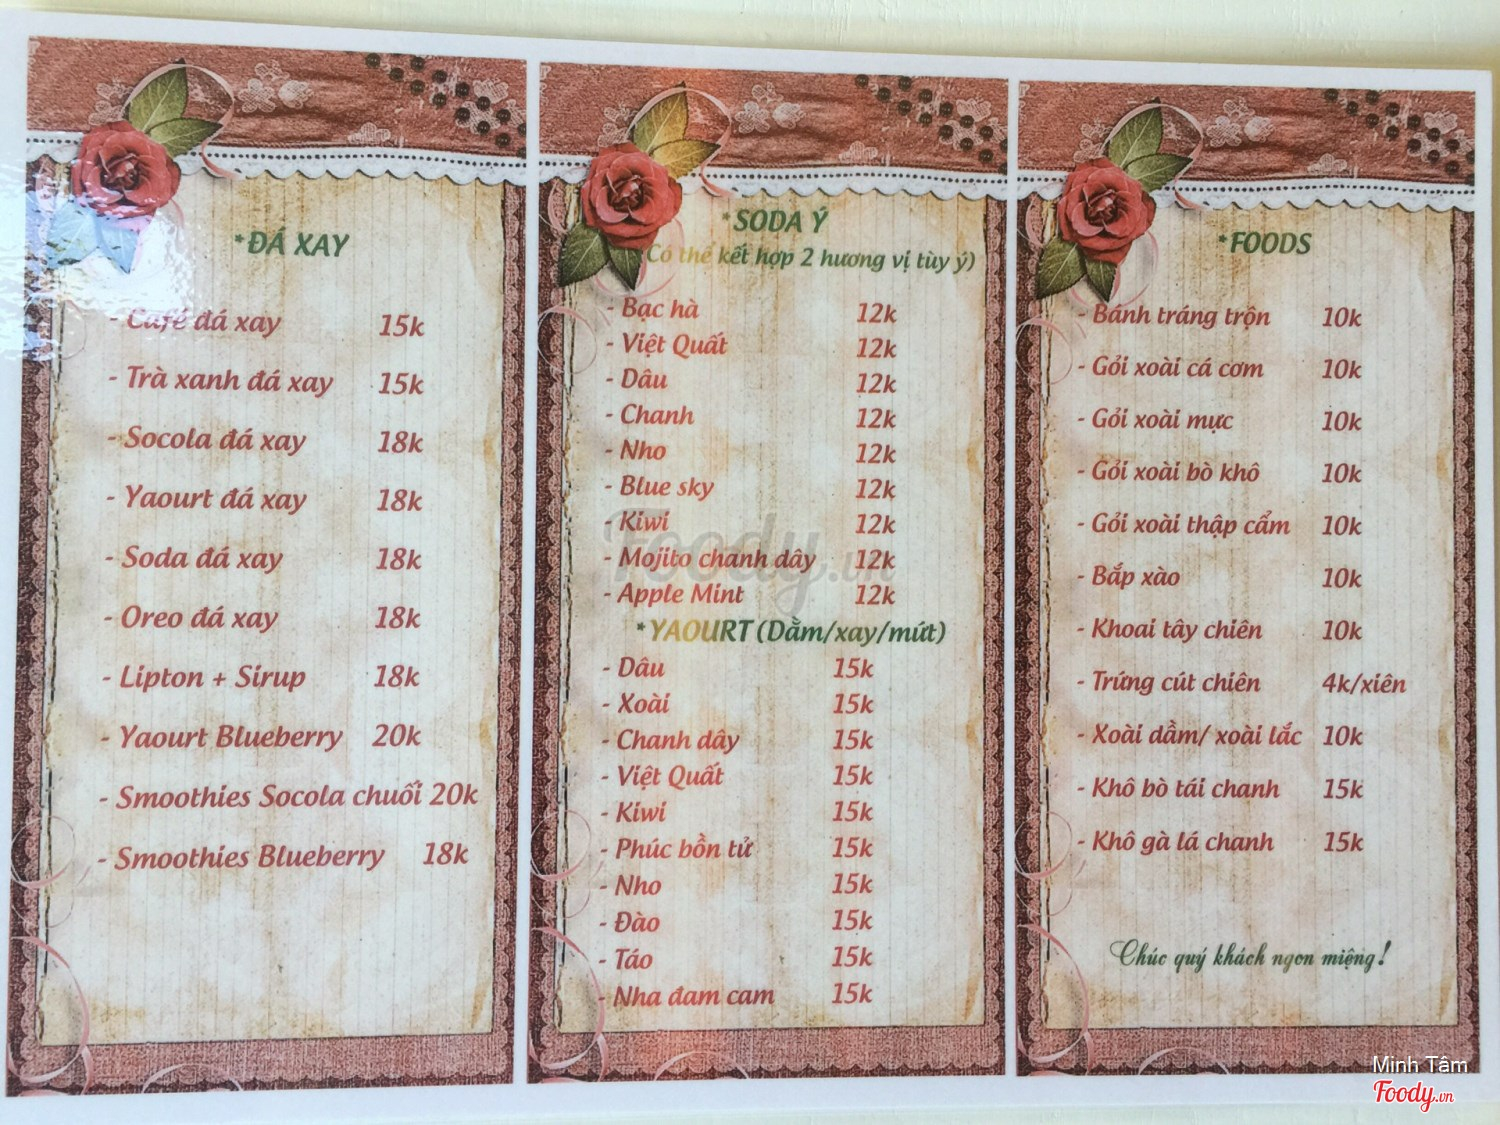 *ĐÁ XAY
- Café đá xay 15k
- Trà xanh đá xay 15k
- Socola đá xay 18k
- Yaourt đá xay 18k
- Soda đá xay 18k
- Oreo đá xay 18k
- Lipton + Sirup 18k
- Yaourt Blueberry 20k
- Smoothies Socola chuối 20k
- Smoothies Blueberry 18k
*SODA Ý
Có thể kết hợp 2 hương vị tùy ý)
- Bạc hà 12k
- Việt Quất 12k
- Dâu 12k
- Chanh 12k
- Nho 12k
- Blue sky 12k
- Kiwi 12k
- Mojito chanh dây 12k
- Apple Mint 12k
*YAOURT (Dằm/xay/mứt)
- Dâu 15k
- Xoài 15k
- Chanh dây 15k
- Việt Quất 15k
- Kiwi 15k
- Phúc bồn tử 15k
- Nho 15k
- Đào 15k
- Táo 15k
- Nha đam cam 15k
*FOODS
- Bánh tráng trộn 10k
- Gỏi xoài cá cơm 10k
- Gỏi xoài mực 10k
- Gỏi xoài bò khô 10k
- Gỏi xoài thập cẩm 10k
- Bắp xào 10k
- Khoai tây chiên 10k
- Trứng cút chiên 4k/xiên
- Xoài dầm/ xoài lắc 10k
- Khô bò tái chanh 15k
- Khô gà lá chanh 15k
Chúc quý khách ngon miệng!
Foody.vn
Minh Tâm
Foody.vn